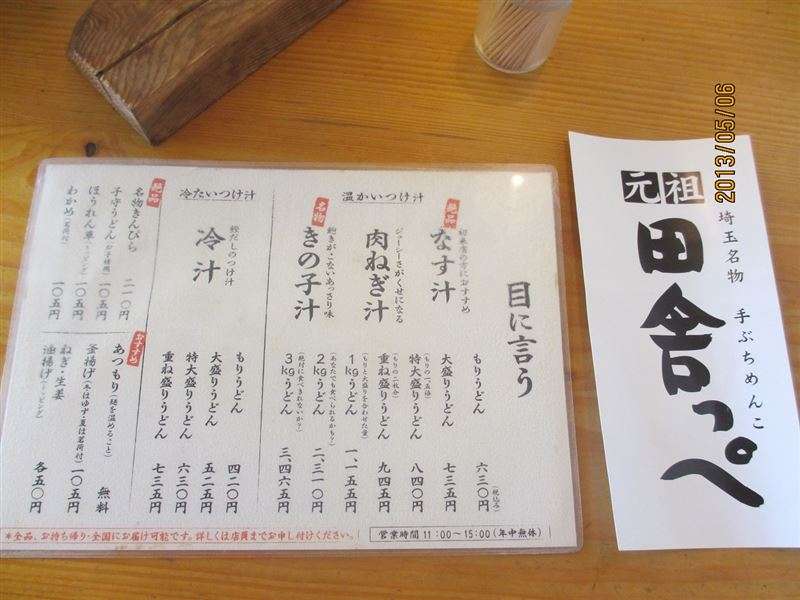 目に言う
温かいつけ汁
絶品
初来店の方におすすめ
なす汁
ジューシーさがくせになる
肉ねぎ汁
名物
飽きがこないあっさり味
きの子汁
もりうどん 六三〇円(税込み)
大盛りうどん 七三五円
特大盛りうどん 八四〇円
重ね盛りうどん 九四五円
1kgうどん 一、一五五円
2kgうどん (あなたでも食べられるかも?) 二、三一〇円
3kgうどん (絶対に食べきれないか?) 三、四六五円
冷たいつけ汁
鰹だしのつけ汁
冷汁
もりうどん 四二〇円
大盛りうどん 五二五円
特大盛りうどん 六三〇円
重ね盛りうどん 七三五円
絶品
名物きんぴら 二一〇円
子守うどん(お子様用) 一〇五円
ほうれん草(トッピング) 一〇五円
わかめ(茗荷付) 一〇五円
おすすめ
あつもり(麺を温めること) 無料
釜揚げ(冬はゆず夏は茗荷付) 一〇五円
ねぎ・生姜
油揚げ(トッピング) 各五〇円
*全品、お持ち帰り・全国にお届け可能です。詳しくは店員までお申し付けください。
営業時間 11:00～15:00(年中無休)
元祖
田舎っぺ
埼玉名物 手ぶちめんこ
2013/05/06